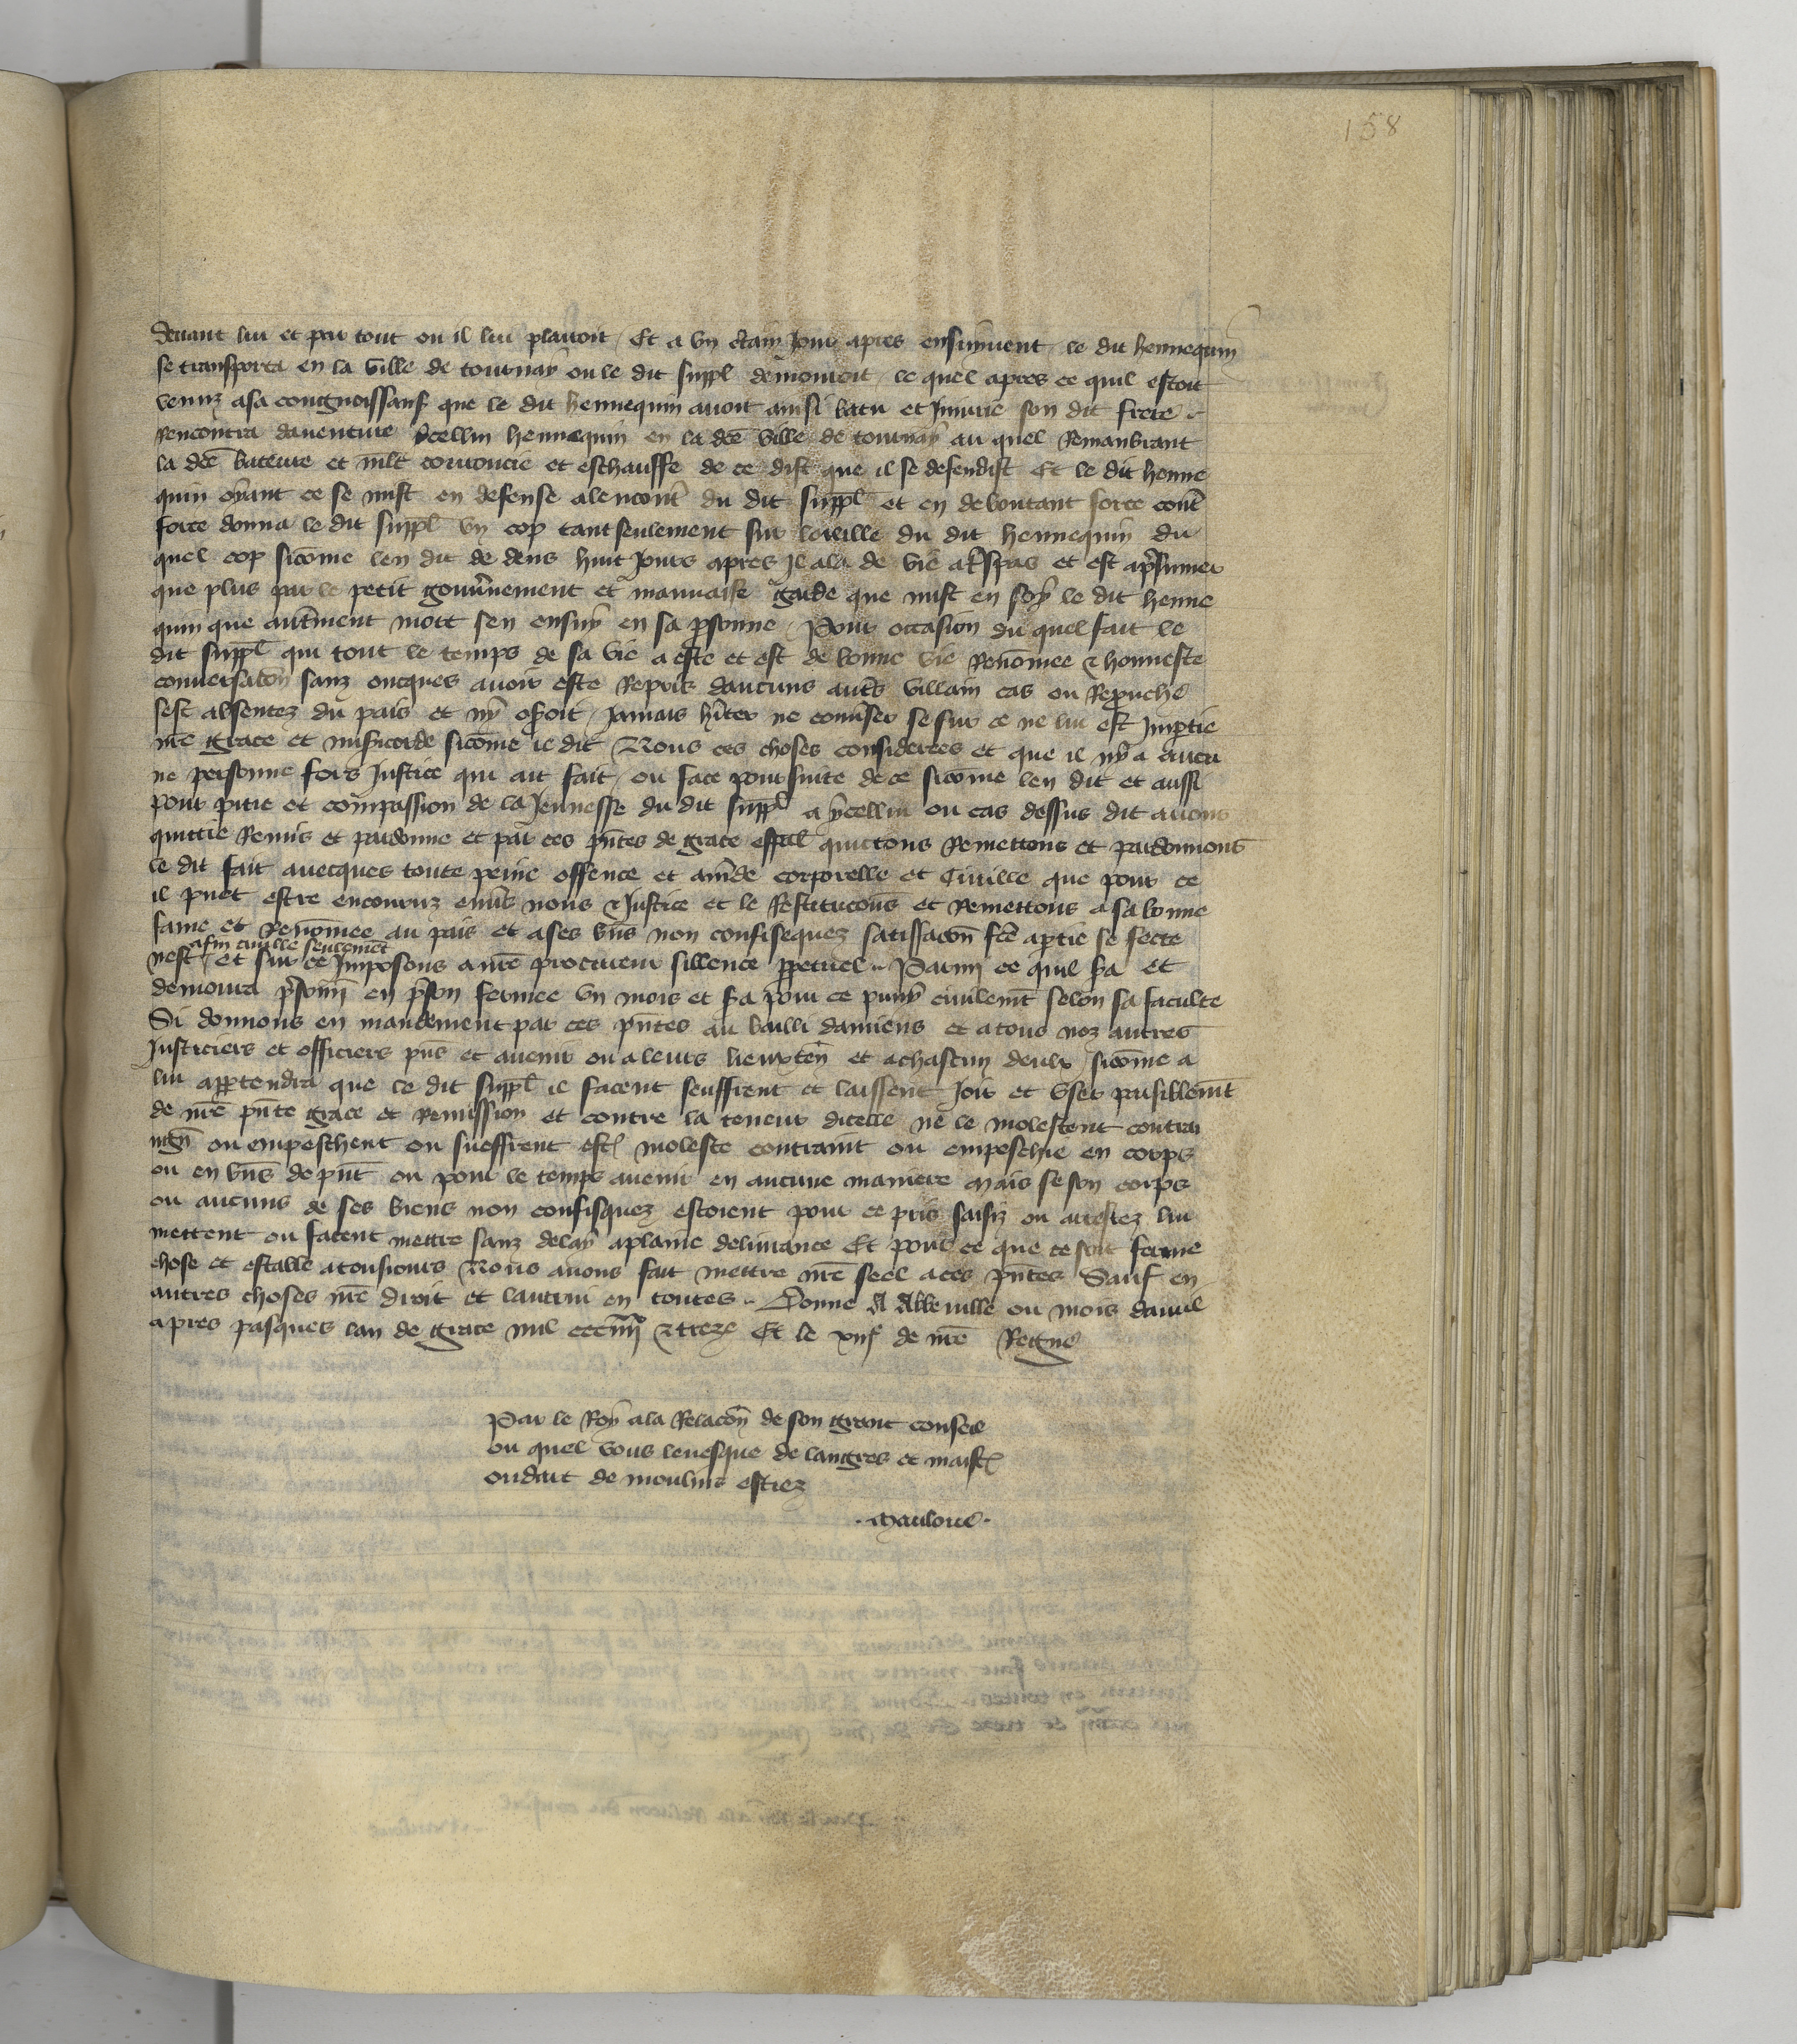 158
devant lui et par tout ou il lui plairoit / Et a un ctain jour apres ensuivent le dit hennequin
se transporta en la ville de tournay ou le dit suppl demouroit / le quel apres ce quil estoit
venuz a sa congnoissance que le dit hennequin avoit ainsi batu et Injurie son dit frere
Rencontra daventure ycellui hennequin en la dce ville de tournay au quel Remanbrant
la dce bateure et mlt courroucie et eschauffe de ce dist que il se defendist Et le dit henne
quin oyant ce se mist en defense alencontr du dit suppl et en deboutant force contr
force donna le dit suppl un cop tant seulement sur loreille du dit hennequin du
quel cop sicome len dit de dens huit Jours apres Il ala de vie a trespas et est a psumer
que plus par le petit gouvnement et mauvaise garde que mist en soy le dit henne
quin que autrement mort sen ensuy en sa psonne / Pour occasion du quel fait le
dit suppl qui tout le temps de sa vie a este et est de bonne vie Renomee & honneste
conversacon sanz oncques avoir este Repris daucuns autrs villain cas ou Reprouche
sest absentez du pais et ny oseroit / Jamais hiter ne convser se sur ce ne lui est Imptie
nre grace et misicorde sicome il dit / Nous ces choses considerees et que il ny a aucu
ne personne fors Justice qui ait fait / ou face poursuite de ce sicome len dit et aussi
pour pitie et compassion de la Jeunesse du dit suppl a ycellui ou cas dessus dit avons
quittie Remis et pardonne et par ces pntes de grace esspal quittons Remettons et pardonnons
le dit fait avecques toute peine offence et amde corporelle et Civille que pour ce
il puet estre encouruz envrs nous & Justice et le Restitucons et Remettons a sa bonne
fame et Renomee au pais et a ses bns non confisequez satisfacon fce a ptie se fecte
afin civille seulemēt
nest / et sur ce Imposons a nre procureur sillence ppetuel .. Parmi ce quil sa et
demoura prisonn en pson fermee un mois et sa pour ce puny civilemt selon sa faculte
Si donnons en mandement par ces pntes au bailli damiens et a tous noz autres
Justiciers et officiers pns et avenir ou a leurs lieuxten et a chascun deulx sicome a
lui appartendra que le dit suppl il facent seuffrent et laissent Joir et user paisiblemt
de nre pnte grace et Remission et contre la teneur dicelle ne le molestent contrai
ngn ou empeschent ou sueffrent est moleste contraint ou empeschie en corps
ou en bns de pnt ou pour le temps avenir en aucune maniere Mais se son corps
ou aucuns de ses biens non confisquez estoient pour ce pris saisiz ou arrestez lui
mettent ou facent mettre sanz delay a plaine delivrance Et pour ce que ce soit ferme
chose et estable a tousjours Nous avons fait mettre nre seel a ces pntes Sauf en
autres choses nre droit et lautrui en toutes .. Donne A Abbeville ou mois davril
apres pasques lan de grace mil ccciiiixx & treze Et le xiiie de nre Regne
Par le Roy a la Relacon de son grant conseil
ou quel vous levesque de langres et maist
oudart de moulins estiez
. Mauloue .